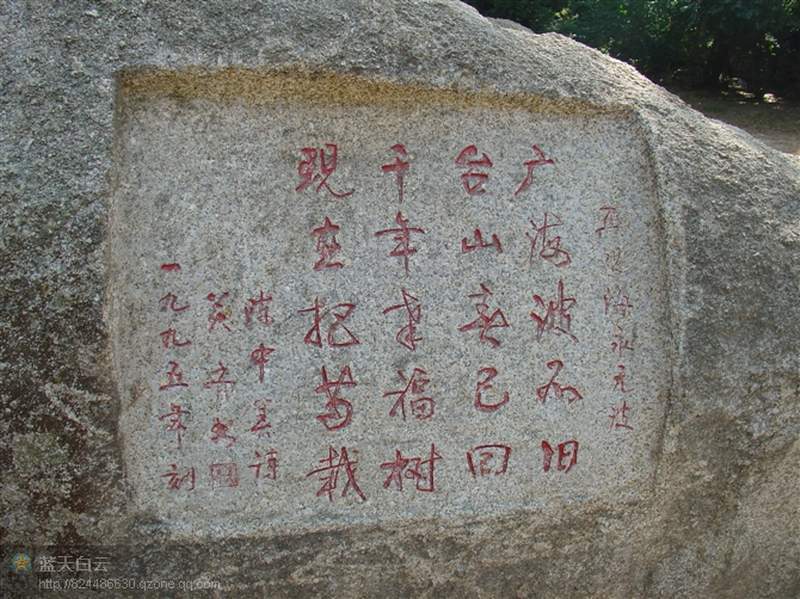 海永无波
广海波如旧
台山春已回
千年幸福树
現在把苗栽
陈中美诗
一九九五年刻
蓝天白云
http://824486630.qzone.qq.com